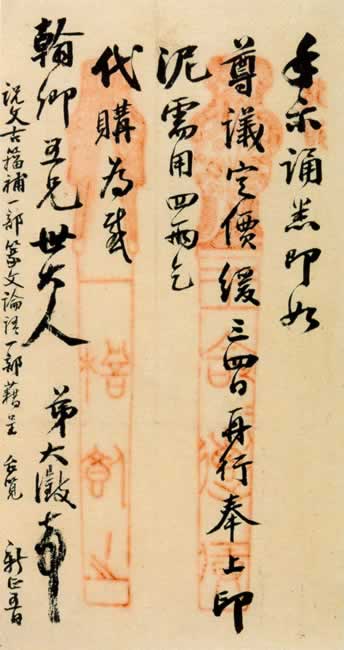 手示誦悉即如
尊議定價緩三四日再行奉上印
泥需用四兩乞
代購為感
翰卿五兄世大人
弟大澂頓首
說文古籀補一部篆文論語一部藉呈 台覽 新正五日